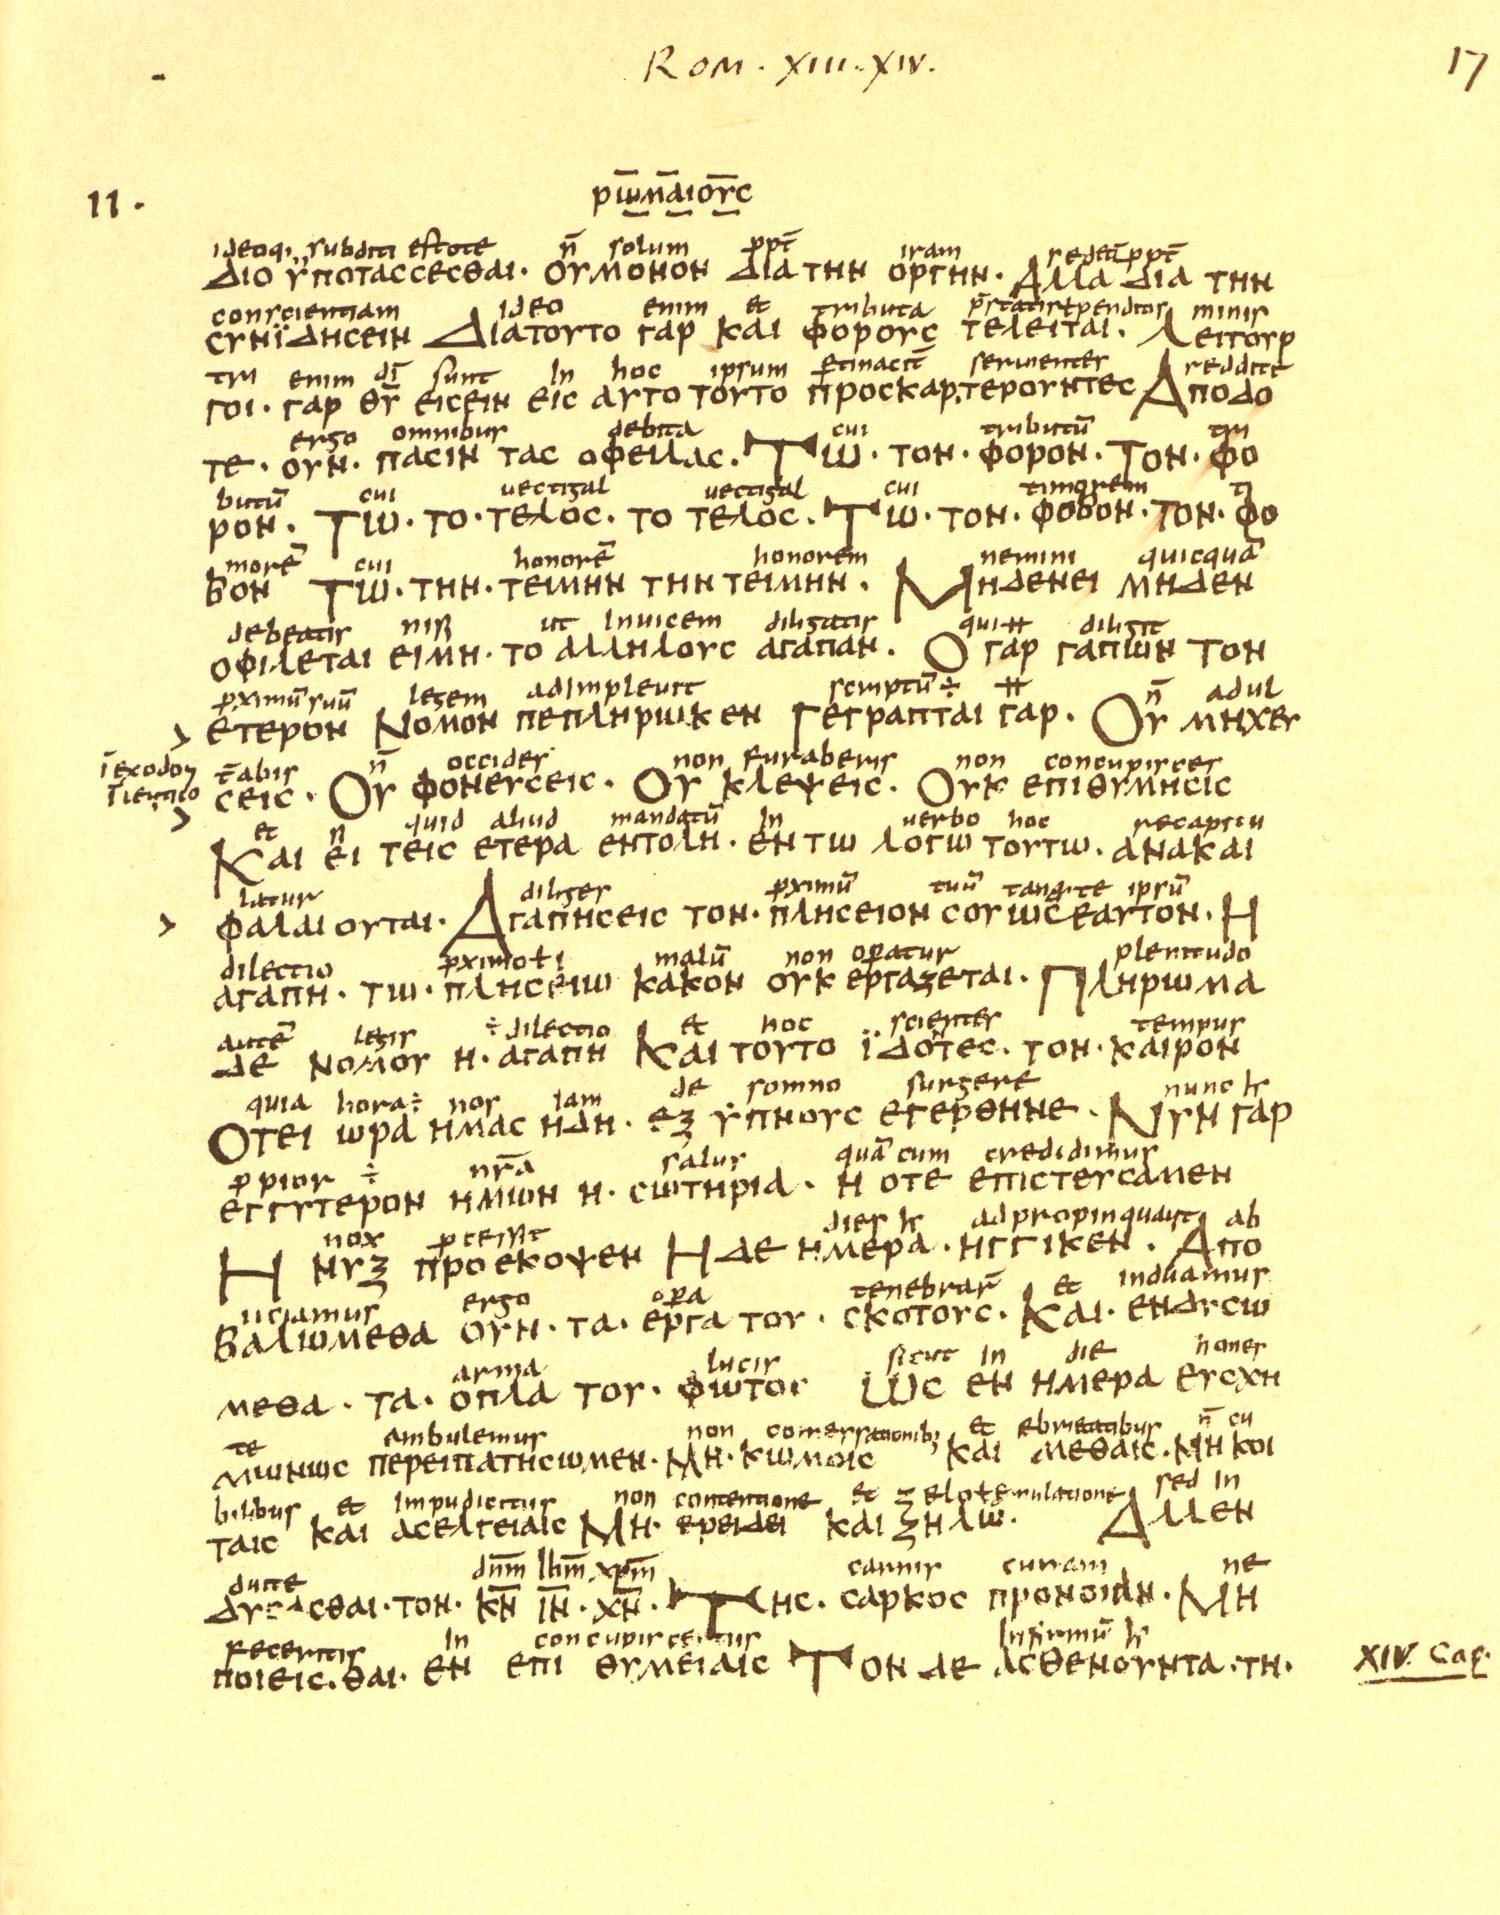 Rom. XIII. XIV. 17
11. ρωμαιους
ideoq; subditi estote n̄ solum ꝓpt̄ iram reddit̄ ꝓpt̄
διο ϋποτασσεσθαι· ου μονον δια την οργην· Αλλα δια την
conscientiam ideo enim et tributa p̄statis ɫ penditis minis
συνϊδησειν Δια τουτο γαρ και φορους τελειται. Λειτουρ
tri enim dī sunt in hoc ipsum ꝑtinacit̄ seruientes reddite
γοι· γαρ θῡ εισειν εις αυτο τουτο προσκαρ.τερουντες Αποδο
ergo omnibus debita cui tributū tri
τε· ουν· πασιν τας οφειλας. Τω· τον· φορον. Τον· φο
butū cui uectigal uectigal cui timorem ti
ρον. Τω· το· τελος. το τελος. Τω· τον· φοβον. τον· φο
morē cui honorē honorem nemini quicquā
βον Τω· την· τειμην την τειμην. Μηδενει μηδεν
debeatis nisi ut inuicem diligatis qui diligit
οφιλεται ειμη· το αλληλους αγαπαν. Ο γαρ γαπων τον
ꝓximū suū legem adimpleuit scriptū ÷ n̄ adul
ετερον Νομον πεπληρωκεν Γεγραπται γαρ. Ου μηχευ
ī exodon
t̄abis n̄ occides non furaberis non concupisces
σεις. Ου φονευσεις. Ου κλεψεις. Ουκ επιθυμησις
et quid aliud mandatū in uerbo hoc recapitu
Και ει τεις ετερα εντολη. εν τω λογω τουτω. ανακαι
latur diliges ꝓximū tuū ipsū
φαλαι ουται. Αγαπησεις τον· πλησειον σου ως εαυτον. Η
dilectio ꝓximo malū non oꝑatur plenitudo
αγαπη. τω· πλησειω κακον ουκ εργαζεται. Πληρωμα
autē legis ÷ dilectio et hoc scientes tempus
δε νομου η· αγαπη Και τουτο ϊδοτες. τον· καιρον
quia hora÷ nos iam de somno surgere nunc
Οτει ωρα ημας ηδη. εξ ϋπνους εγερθηνε. Νυν γαρ
ꝓpior ÷ nr̄a salus quā cum credidimus
εγγυτερον ημων η· σωτηρια. η οτε επιστευσαμεν
nox dies adpropinquauit ab
Η νυξ προεκοψεν Η δε ημερα. ηγγικεν. Απο
iiciamus ergo oꝑa tenebrar̄ et induamus
βαλωμεθα ουν· τα· εργα του· σκοτους. Και· ενδυσω
arma lucis sicut in die hones
μεθα. τα· οπλα του· φωτος Ως εν ημερα ευσχη
te ambulemus non comersationib; et ebrietatibus n̄ cu
μωνως περειπατησωμεν. Μη· κωμοις και μεθαις. Μη κοι
bilibus et impudicitiis non contentione et sed in
ταις και ασελγειαις Μη· ερειδει και ζηλω. Αλλεν
duite dn̄m ihm̄ xpm̄ carnis curam ne
δυσασθαι. τον· κν̄ ιν̄. χν̄. Της. σαρκος προνοιαν. Μη
feceritis in concupiscentiis infirmū
ποιεις.θαι· εν επι θυμειαις Τον δε ασθενουντα.τη. XIV. Cap.